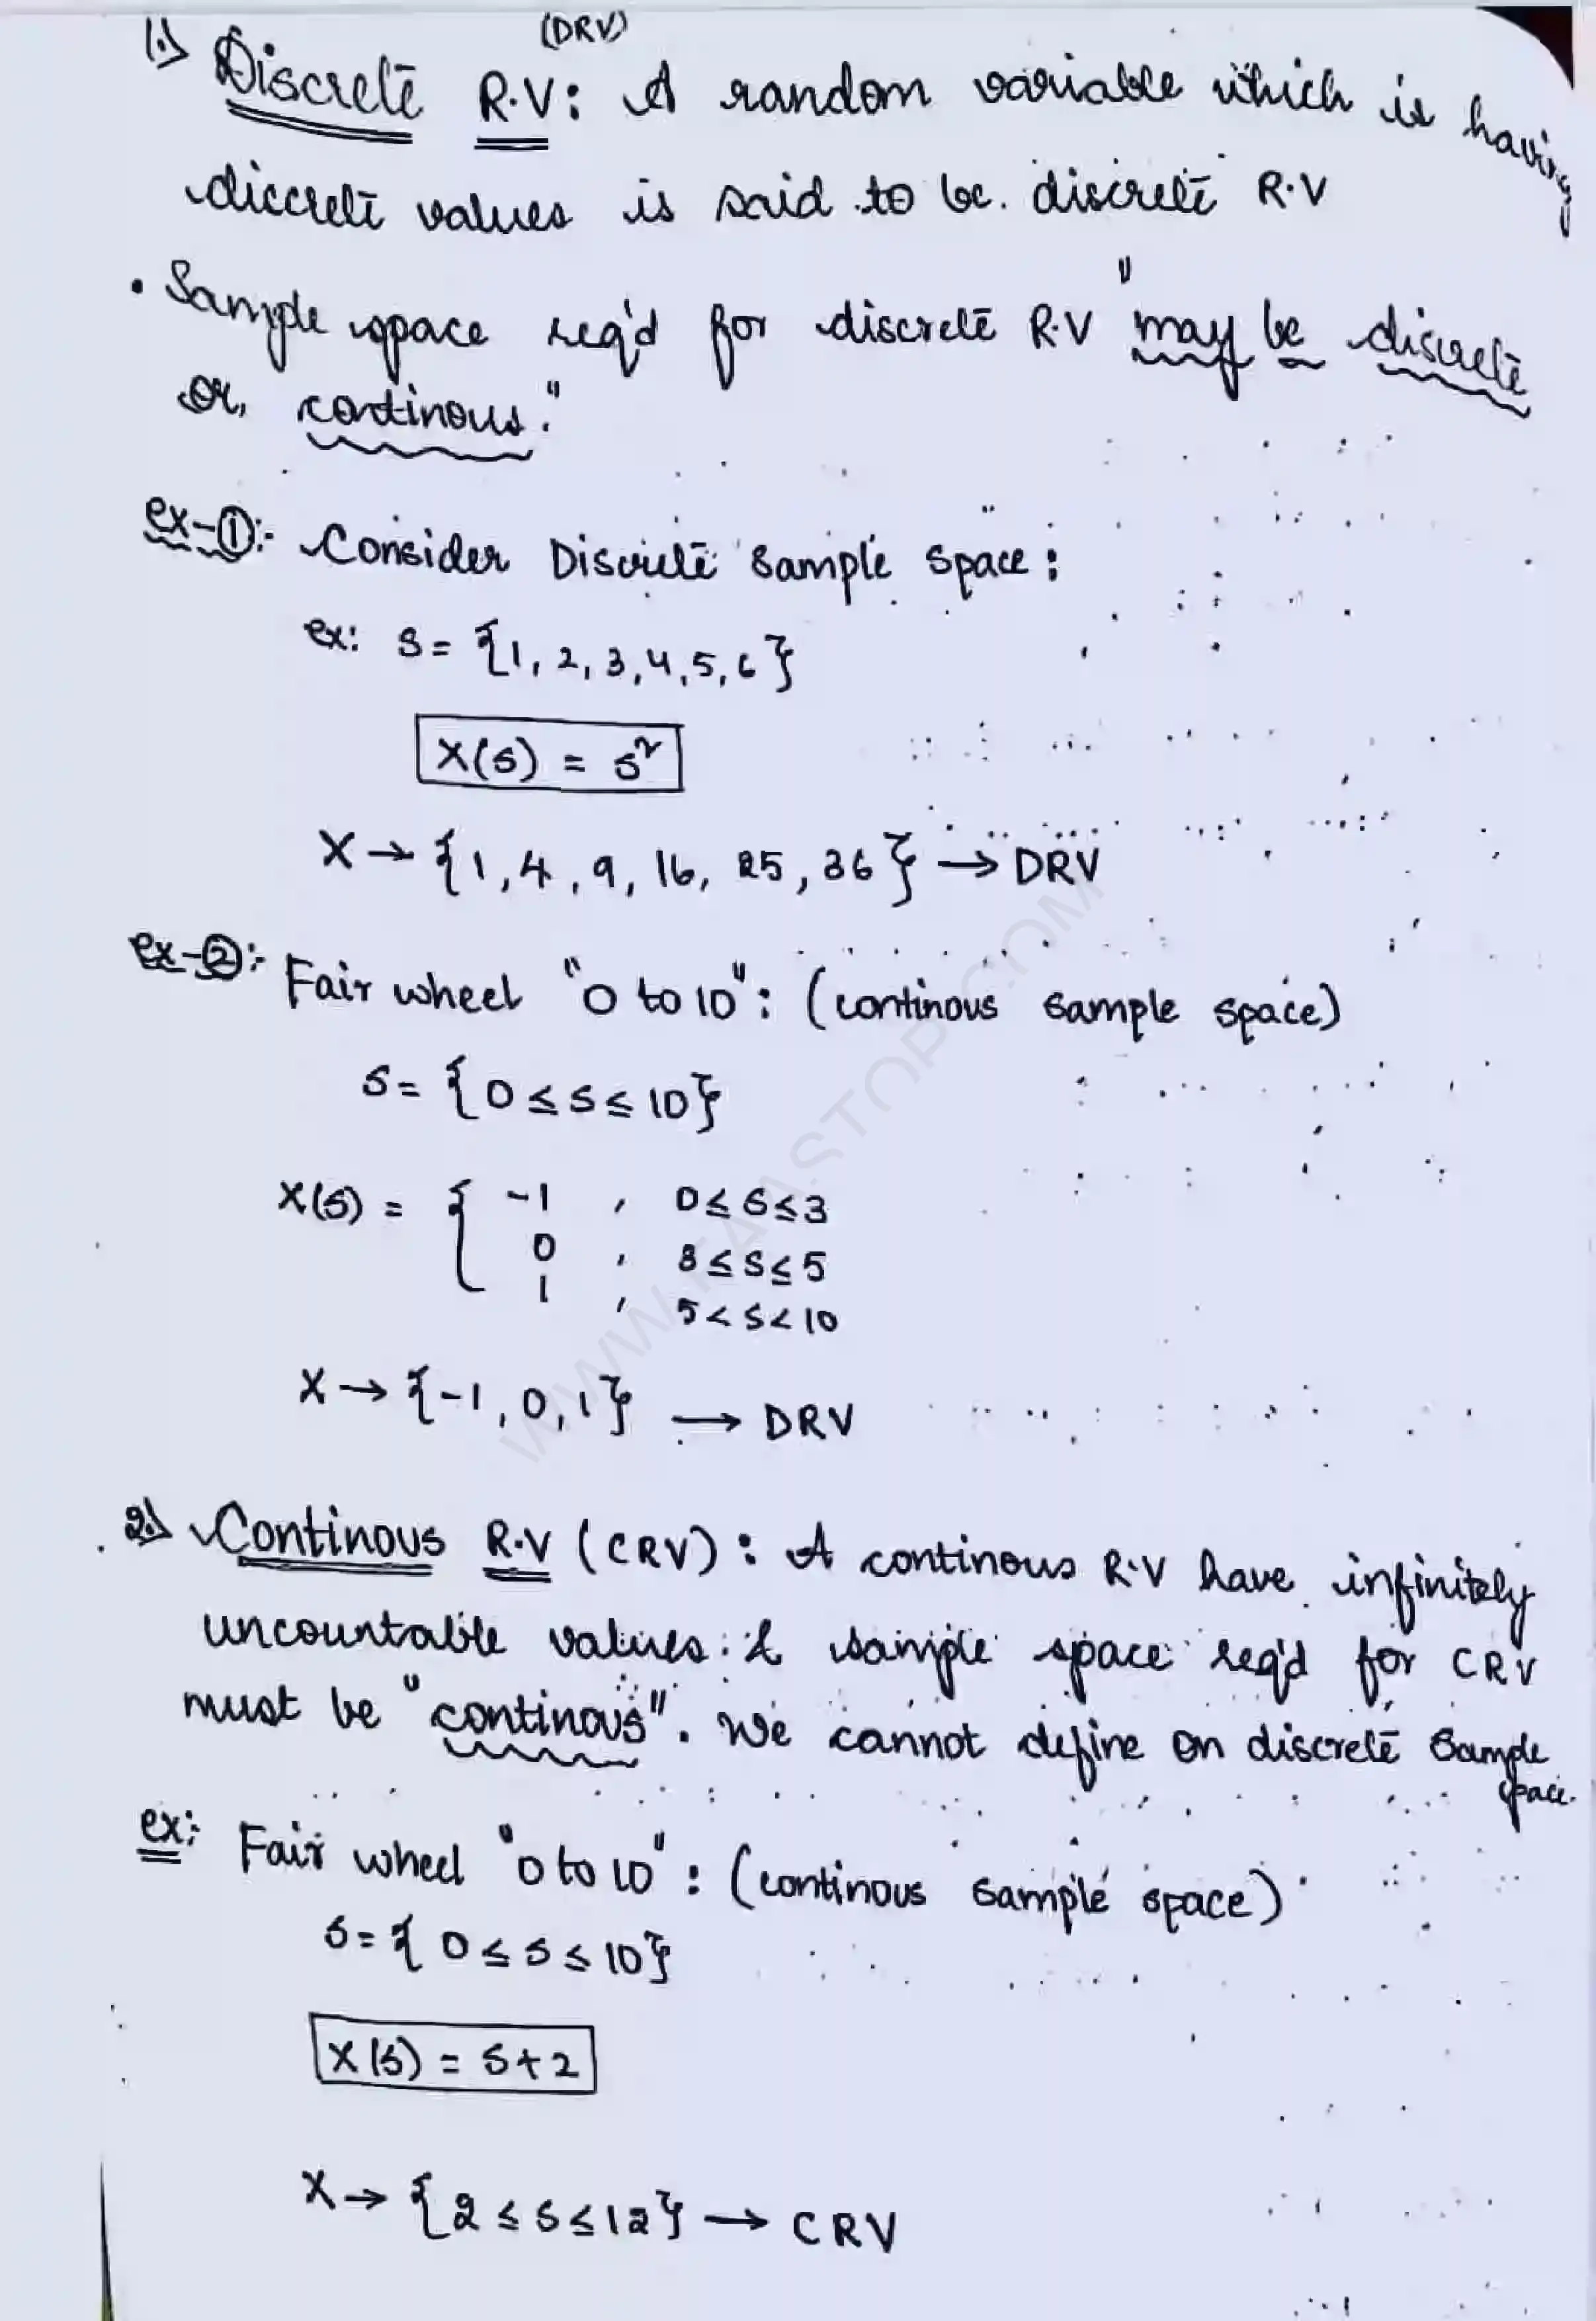 (DRV)
1.) Discrete R.V: A random variable which is having
discrete values is said to be discrete R.V
• Sample space req'd for discrete R.V "may be discrete
or, continous."
ex-①:- Consider Discrete sample space:
ex: S = {1, 2, 3, 4, 5, 6}
X(s) = s²
X → {1, 4, 9, 16, 25, 36} → DRV
ex-②:- Fair wheel "0 to 10": (continous sample space)
S = {0 ≤ s ≤ 10}
X(s) = { -1 , 0 ≤ s ≤ 3
0 , 3 ≤ s ≤ 5
1 , 5 < s < 10
X → {-1, 0, 1} → DRV
2.) Continous R.V (CRV): A continous R.V have infinitely
uncountable values. & sample space req'd for CRV
must be "continous". We cannot define on discrete sample
space.
ex: Fair wheel "0 to 10": (continous sample space)
S = {0 ≤ s ≤ 10}
X(s) = s+2
X → {2 ≤ s ≤ 12} → CRV